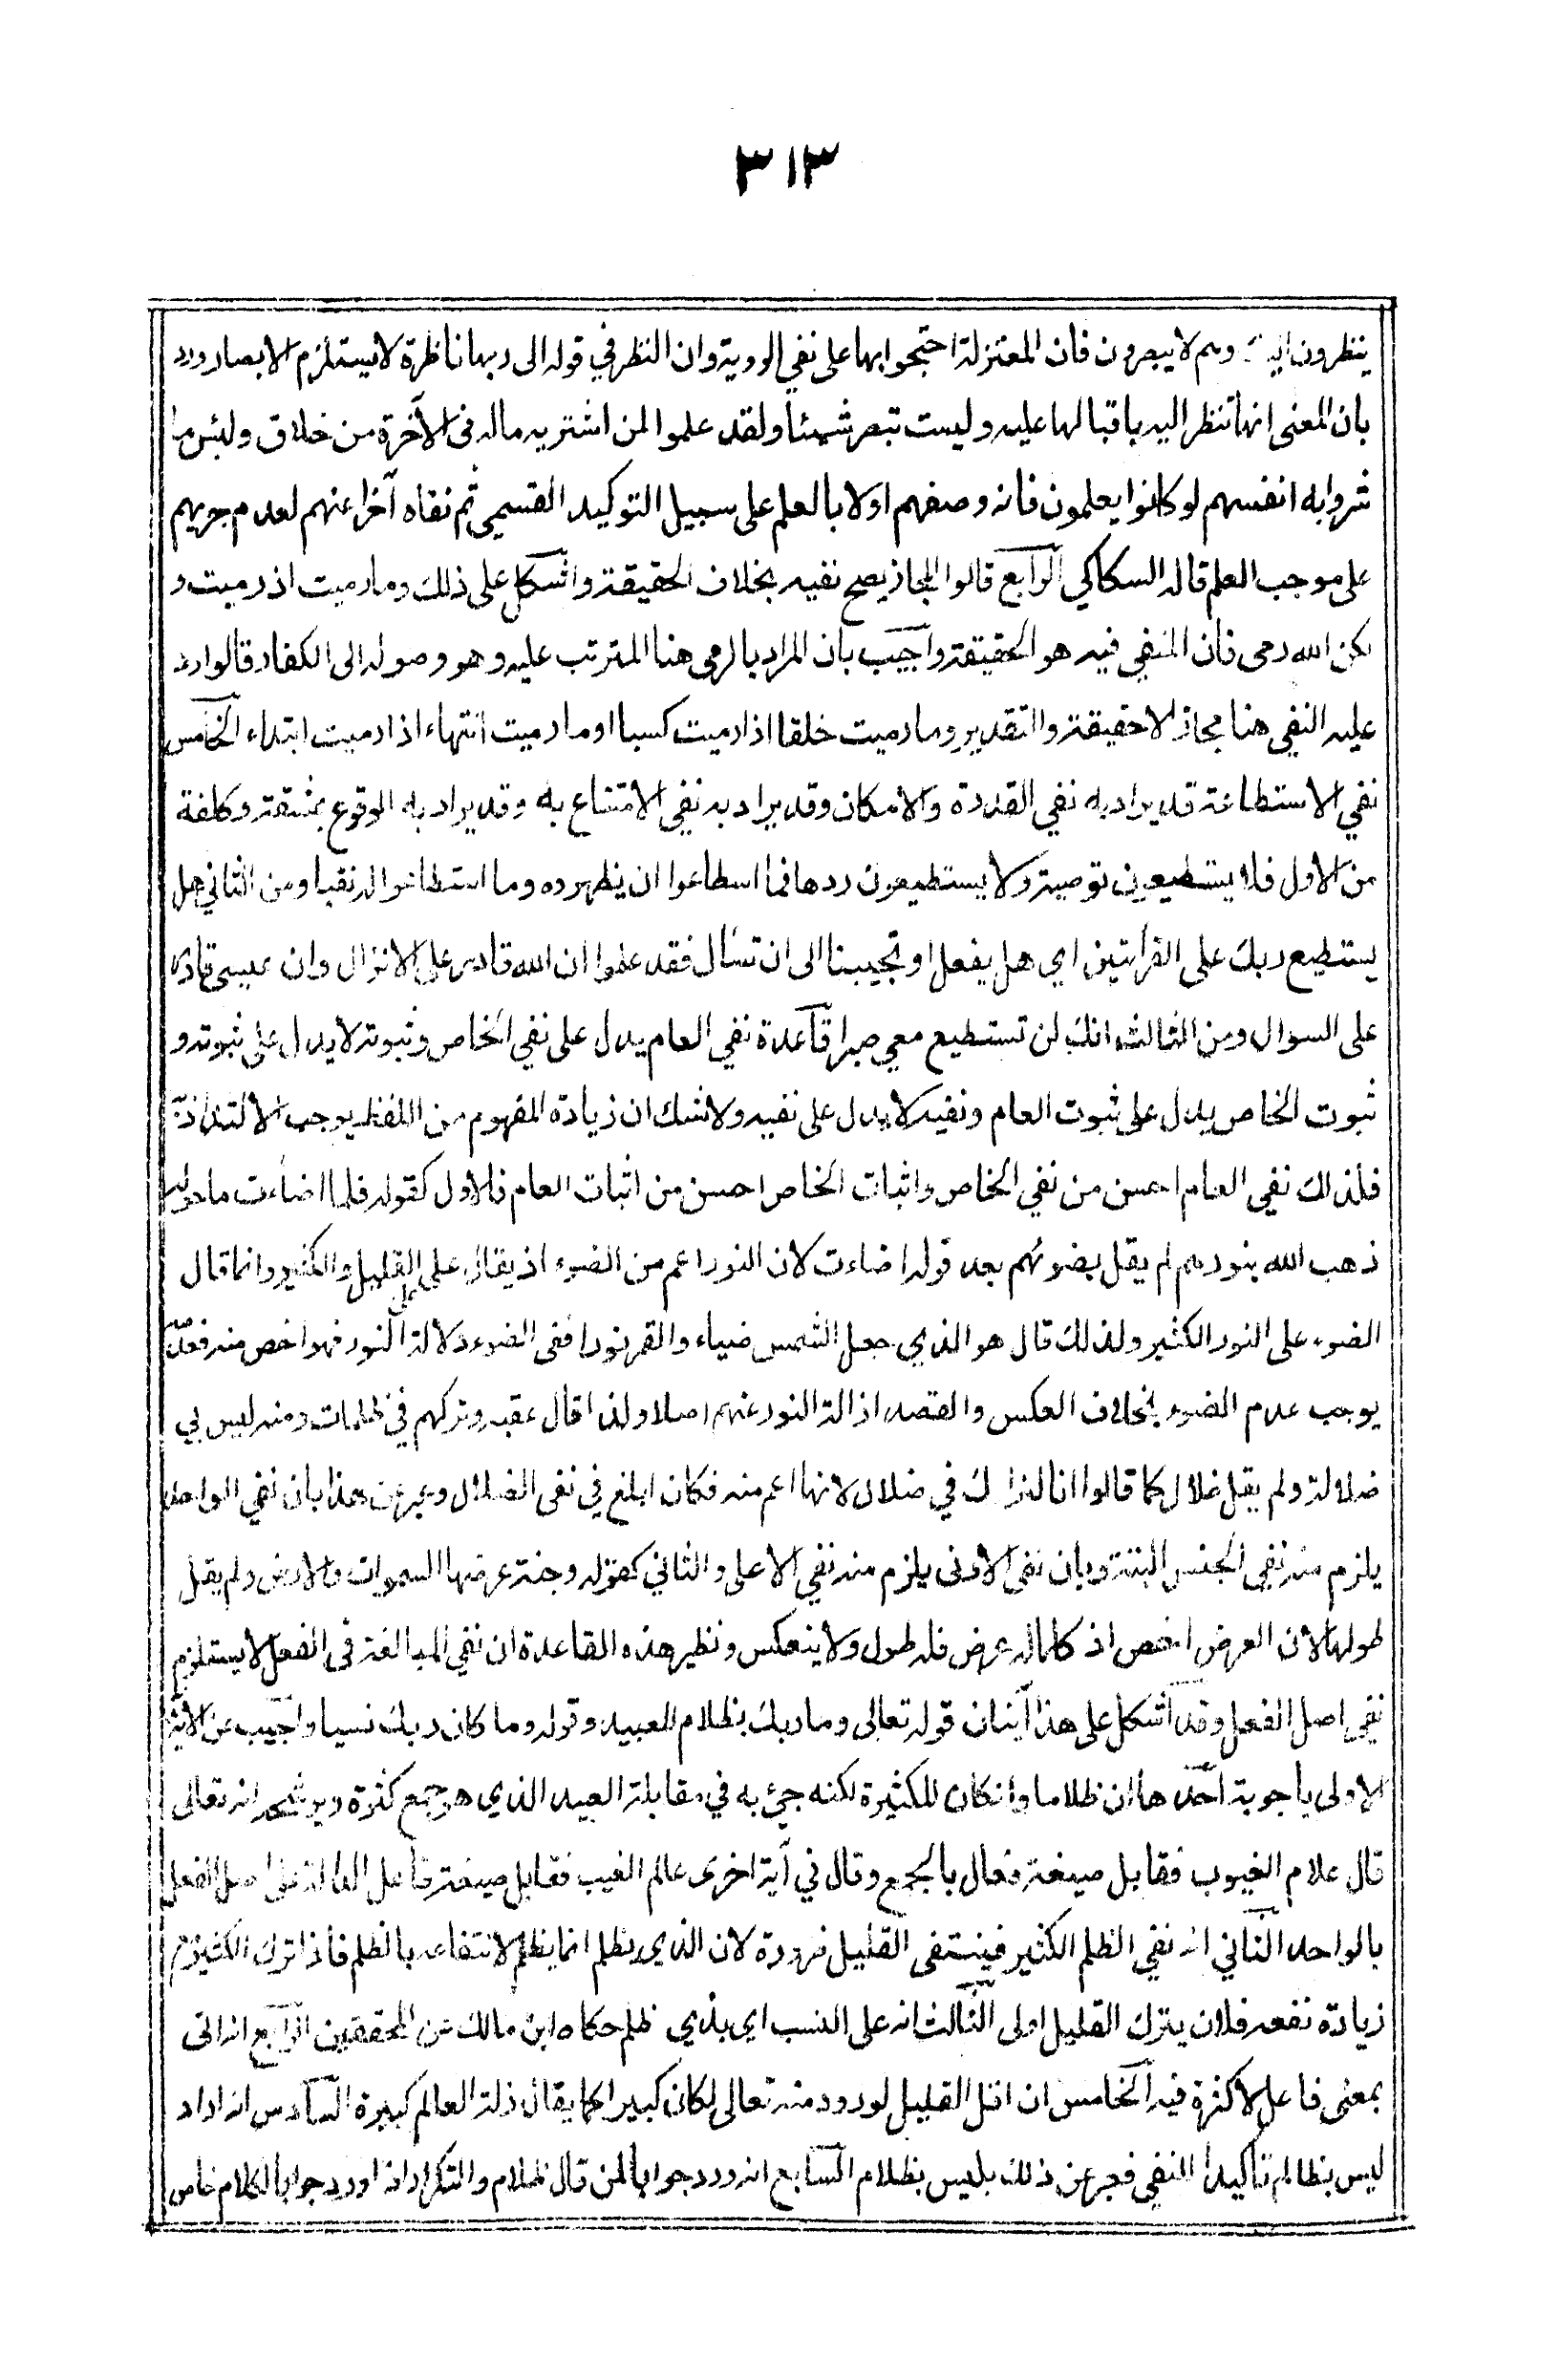 ٣١٣
ينظرون اليك وهم لا يبصرون فان المعتزلة احتجوا بها على نفي الروية وان النظر في قوله الى ربها ناظرة لا يستلزم الابصار ورد
بان المعنى انها تنظر اليه باقبالها عليه وليست تبصر شيئا ولقد علموا لمن اشتريه ماله في الآخرة من خلاق ولبئس ما
شروا به انفسهم لو كانوا يعلمون فانه وصفهم اولا بالعلم على سبيل التوكيد القسمي ثم نفاه آخرا عنهم لعدم جريهم
على موجب العلم قاله السكاكي الرابع قالوا المجاز يصح نفيه بخلاف الحقيقة واشكل على ذلك وما رميت اذ رميت و
لكن الله رمى فان المنفي فيه هو الحقيقة واجيب بان المراد بالرمي هنا المترتب عليه وهو وصوله الى الكفار فالوارد
عليه النفي هنا مجاز لا حقيقة والتقدير وما رميت خلقا اذ رميت كسبا او ما رميت انتهاء اذ ارميت ابتداء الخامس
نفي الاستطاعة قد يراد به نفي القدرة والامكان وقد يراد به نفي الامتناع به وقد يراد به الوقوع بمشقة وكلفة
من الاول فلا يستطيعون توصية ولا يستطيعون ردها فما اسطاعوا ان يظهروه وما استطاعوا له نقبا ومن الثاني هل
يستطيع ربك على القرأتين اي هل يفعل او تجيبنا الى ان تسأل فقد علموا ان الله قادر على الانزال وان عيسى قادر
على السوال ومن الثالث انك لن تستطيع معي صبرا قاعدة نفي العام يدل على نفي الخاص وثبوته لا يدل على ثبوته و
ثبوت الخاص يدل على ثبوت العام ونفيه لا يدل على نفيه ولا شك ان زيادة المفهوم من اللفظ يوجب الالتذاذ به
فلذلك نفي العام احسن من نفي الخاص واثبات الخاص احسن من اثبات العام فالاول كقوله فلما اضاءت ما حوله
ذهب الله بنورهم لم يقل بضوئهم بعد قوله اضاءت لان النور اعم من الضوء اذ يقال على القليل والكثير وانما قال
الضوء على النور الكثير ولذلك قال هو الذي جعل الشمس ضياء والقمر نورا ففي الضوء دلالة على النور فهو اخص منه فعدمه
يوجب عدم الضوء بخلاف العكس والقصد ازالة النور عنهم اصلا ولذا قال عقبه وتركهم في ظلمات ومنه ليس بي
ضلالة ولم يقل ضلال كما قالوا انا لنراك في ضلال لانها اعم منه فكان ابلغ في نفى الضلال وعبر عن هذا بان نفي الواحد
يلزم منه نفي الجنس البتة وبان نفي الادنى يلزم منه نفي الاعلى والثاني كقوله وجنة عرضها السموات والارض ولم يقل
طولها لان العرض اخص اذ كلما له عرض فله طول ولا ينعكس ونظير هذه القاعدة ان نفي المبالغة في الفعل لا يستلزم
نفي اصل الفعل وقد اشكل على هذا آيتان قوله تعالى وما ربك بظلام للعبيد وقوله وما كان ربك نسيا واجيب عن الآية
الاولى باجوبة احدها ان ظلاما وان كان للكثرة لكنه جيء به في مقابلة العبيد الذي هو جمع كثرة ويرشحه انه تعالى
قال علام الغيوب فقابل صيغة فعال بالجمع وقال في آية اخرى عالم الغيب فقابل صيغة فاعل الدالة على اصل الفعل
بالواحد الثاني انه نفي الظلم الكثير فينتفى القليل ضرورة لان الذي يظلم انما يظلم لانتفاعه بالظلم فاذا ترك الكثير مع
زيادة نفعه فلان يترك القليل اولى الثالث انه على النسب اي بذي ظلم حكاه ابن مالك عن المحققين الرابع انه اتى
بمعنى فاعل لا كثرة فيه الخامس ان اقل القليل لو ورد منه تعالى لكان كبيرا كما يقال زلة العالم كبيرة السادس انه اراد
ليس بظالم تأكيدا للنفي فعبر عن ذلك بليس بظلام السابع انه ورد جوابا لمن قال ظلام والتكرار اذا اورد جوابا لكلام خاص